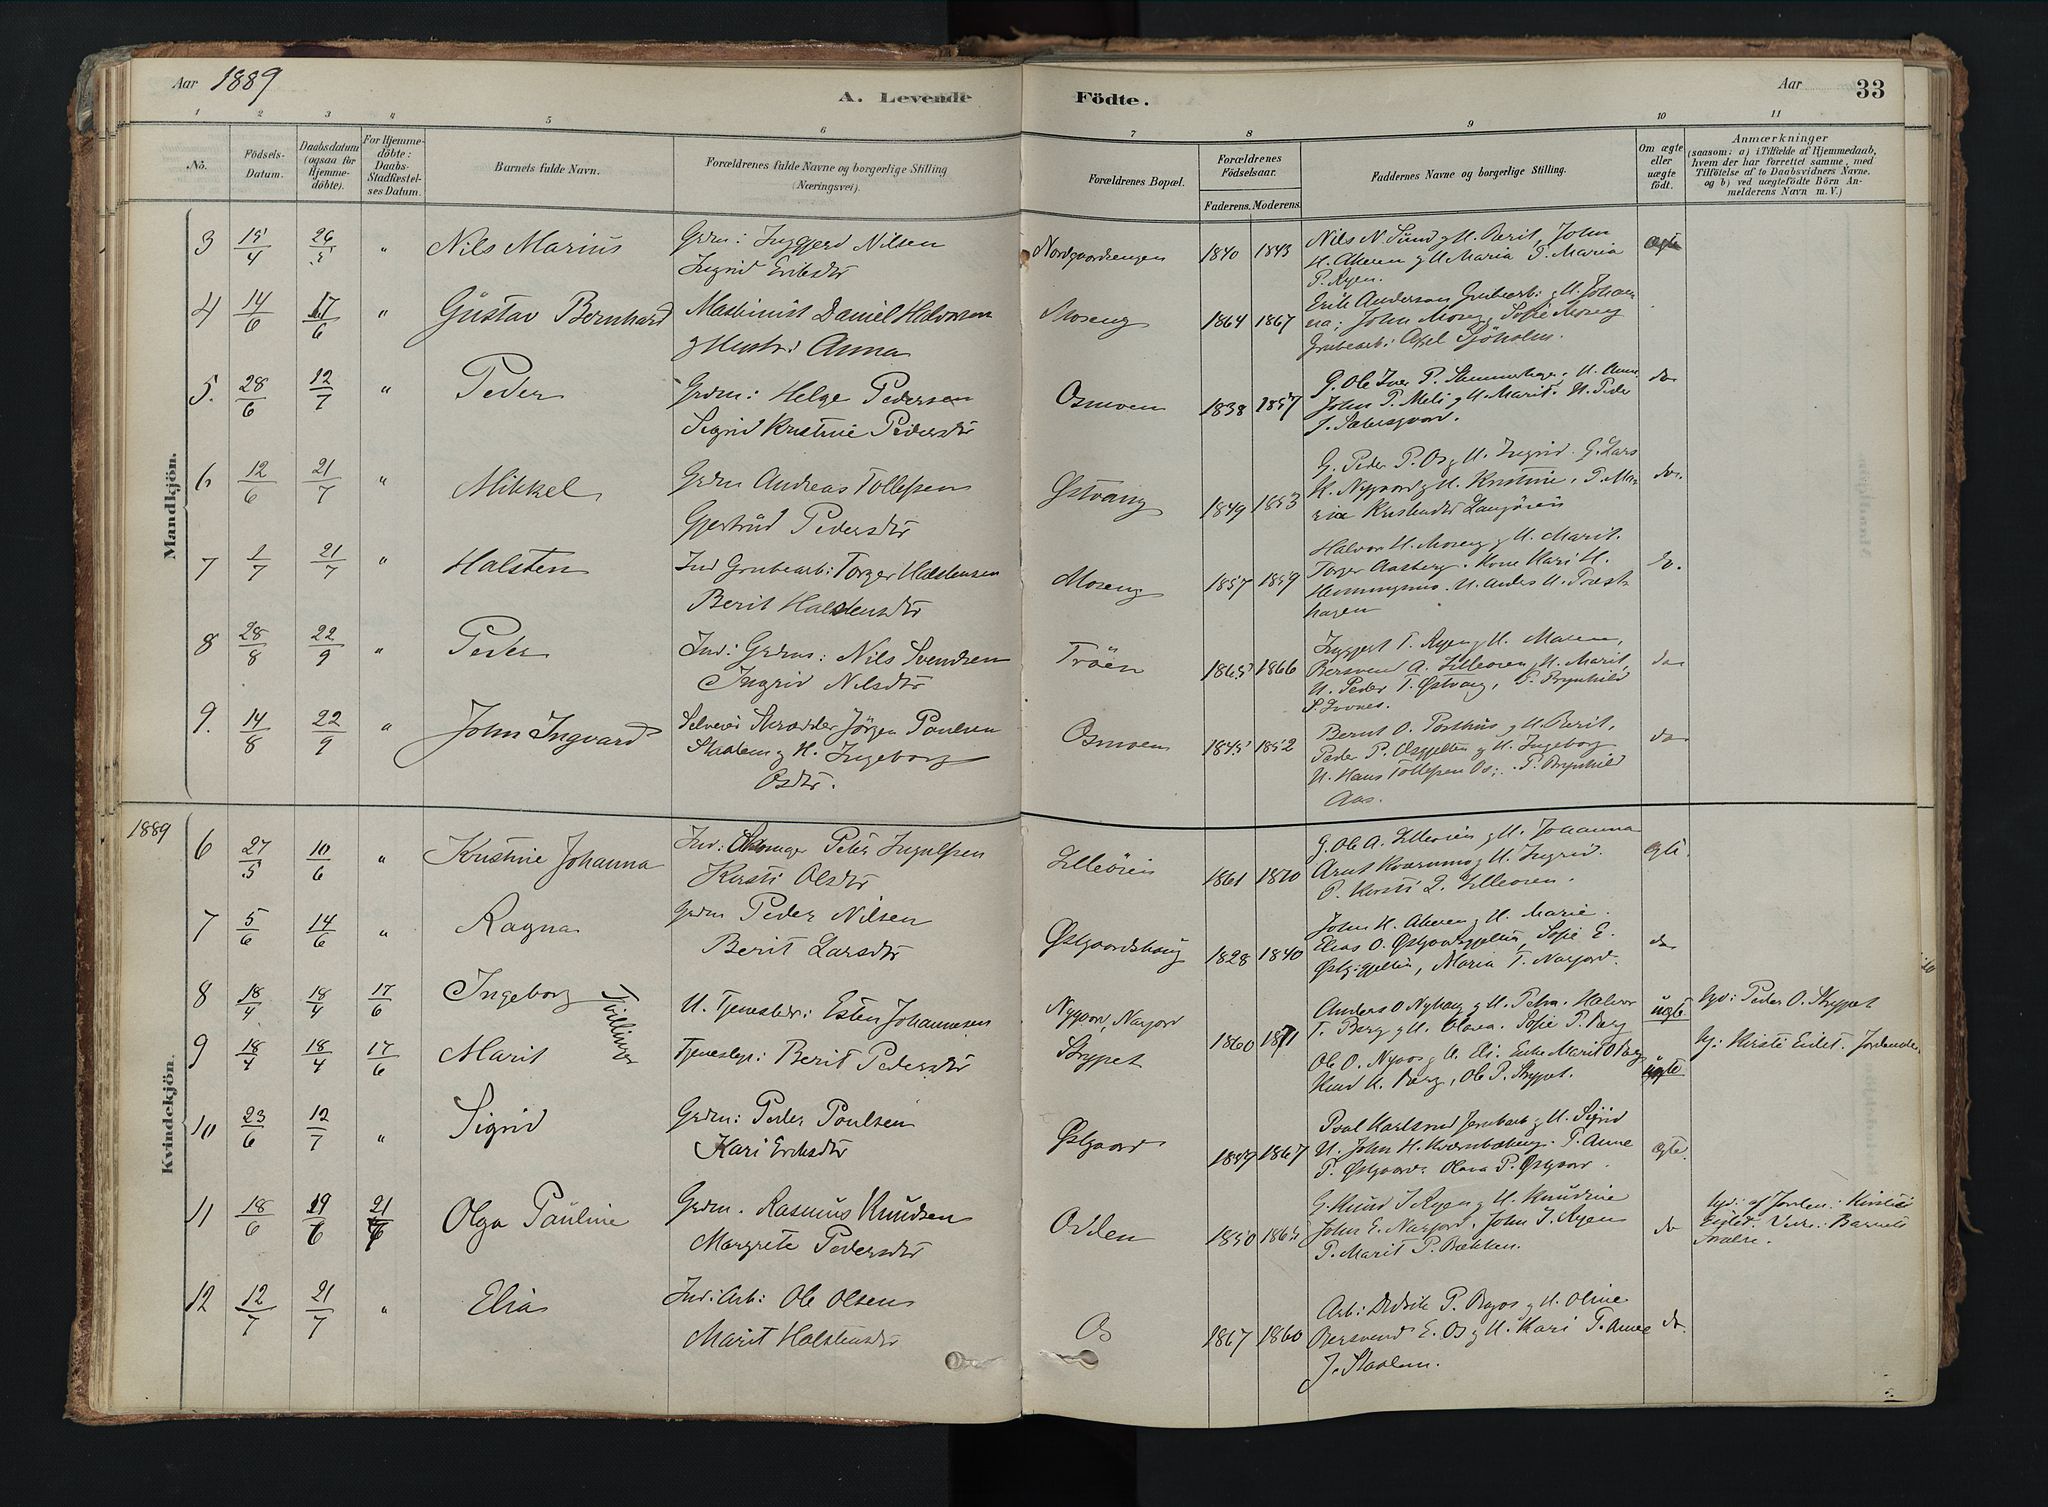 Aar 1889
A. Levende Födte.
Aar 33
1 2 3 4 5 6 7 8 9 10 11
No.
Födsels-Datum.
Daabsdatum (ogsaa for Hjemmedöbte).
For Hjemmedöbte: Daabs-Stadfæstelses Datum.
Barnets fulde Navn.
Forældrenes fulde Navne og borgerlige Stilling (Næringsvei).
Forældrenes Bopæl.
Forældrenes Födselsaar.
Faderens. Moderens.
Faddernes Navne og borgerlige Stilling.
Om ægte eller uægte födt.
Anmærkninger
(saasom: a) i Tilfælde af Hjemmedaab, hvem der har forrettet samme, med Tilföielse af to Daabsvidners Navne. og b) ved uægtefödte Börn Anmelderens Navn m. V.)
Mandkjön.
3 15/4 26/5 " Nils Marius
Grdm: Inggjerd Nilsen
Ingrid Eriksdtr
Nordgaardsengen 1840 1843
Nils N. Sund g H. Berit, John
H. Akeren g H Maria P. Maria
P. Ryen.
ægte
4 14/6 17/6 " Gustav Bernhard
Maskinist Daniel Halvorsen
g Hustr: Anna
Moseng 1864 1867
Erik Anderson Grubearb: g H. Johan
na; John Moseng, Sofie Moseng
Grubearb: Axel Sjöholm.
5. 28/6 12/7 " Peder
Grdm: Helge Pedersen
Sigrid Kristine Pedersdtr
Osmoen 1838 1857
John P. Meli g H. Marit. U. Peder
do
6 12/6 21/7 " Mikkel
Grdm Andreas Tollefsen
Gjertrud Pedersdtr
Østvang 1849 1853
G. Peder P. Os g H. Ingrid. G. Lars
K. Nygaard g H. Kristine, P. Ma
ria
do.
7 1/7 21/7 " Halsten
Ind Grubearb: Torger Halstensen
Berit Halstensdtr
Moseng 1857 1859
Halvor H. Moseng g H. Marit.
Torger Aasberg. Kone Kari H.
Hemmingmo. U. Anders H. Præst
hagen
do.
8 28/8 22/9 " Peder
Ind: Grdm: Nils Svendsen
Ingrid Nilsdtr
Tröen 1865 1866
Inggjert T. Ryen g H. Maren,
Bersvend A. Lilleöien g H. Marit,
U. Peder T. Østvang, P. Brynhild
do
9. 14/8 22/9 " John Ingvard
Selveier Skrædder Jörgen Paulsen
Staalem g H. Ingeborg
Osdtr.
Osmoen 1845 1852
Bernt O. Posthus g H. Berit,
Peder P. Osgjelten g H. Ingeborg
U. Hans Tollefsen Os; P. Brynhild
Aas.
do
1889
Kvindekjön.
6 27/5 10/6 " Kristine Johanna
Ind: Peder Ingulfsen
Kirsti Olsdtr
Lilleöien 1861 1870
G. Ole A. Lilleöien g H. Johanna
Arnt Kværnmo g H. Ingrid.
P. Kirsti Lilleöien.
ægte.
7 5/6 14/6 " Ragna
Grdm Peder Nilsen
Berit Larsdtr
Østgaardshaug 1828 1840
John H. Akeren g H. Marie.
Elias O. Østgaardsgjelten, Sofie E.
Østg:gjelten, Maria T. Narjord.
do
8 18/4 18/4 17/6 Ingeborg
Tvillinger
U. Tjenestedr: Esten Johannesen
Nygaard, Narjord
1860 1871
Anders O Nyhaug g H. Petra. Halvor
T. Berg g H. Olava. Sofie P. Berg
uægte
Hjd: Peder O. Strypet
9 18/4 18/4 17/6 Marit
Tjenestep: Berit Pedersdtr
Strypet
Knud K. Berg, Ole P. Strypet.
uægte
Hj: Kirsti Eidet. Jordemder
10 23/6 12/7 " Sigrid
Grdm: Peder Poulsen
Kari Eriksdtr
Østgaard 1859 1867
Poul Karlsrud Jernbarb g H. Sigrid
U. John H. Kværnbækeng. P. Anne
P. Østgaard. Olava P. Østgaard.
ægte.
11 18/6 19/6 21/6 Olga Pauline
Grdm. Rasmus Knudsen
Margrete Pedersdtr
Odden 1850 1865
G. Knud J. Ryen g H. Knudine
John E. Narjord. John J. Ryen
P. Marit P. Bækken.
do
Hjd: af Jordem: Kirsti
Vidne: Barnets
12 12/7 21/7 " Elia
Ind: Arb: Ole Olsen
Marit Halstensdtr
Os 1867 1860
Arb: Didrik P. Bagos g H. Oline
Bersvend E. Os g H. Kari P. Anne
J. Staalem.
do.